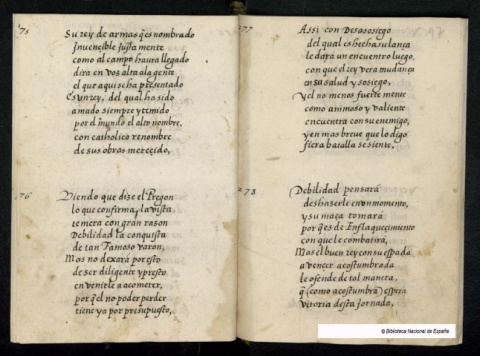 75
Su rey de armas q̃ es nombrado
Inuencible justa mente
como al campo haura llegado
dira en vos alta ala gente
el que aqui se ha presentado
Es un rey, del qual ha sido
amado siempre y temido
por el mundo el alto nombre,
con catholico renombre
de sus obras merecido,
76
Viendo que dize el Pregon
lo que confirma, la vista
temera con gran razon
Debilidad la conquista
de tan famoso varon,
Mas no dexará por esto
de ser diligente y presto
en venirle a acometer,
por q̃ el no poder perder
tiene ya por presupuesto,
277
Assi con Desososiego
del qual es hecha su lança
le dará un encuentro luego,
con que el rey vera mudança
en sa salud y sosiego,
Y el no menos fuerte mente
como animoso y valiente
encuentra con su enemigo,
y en mas breue que lo digo
fiera batalla se siente,
278
Debilidad pensará
deshazerle en vn momento,
y su maça tomará
por q̃ es de Enflaquecimiento
con que le combatirá,
Mas el buen rey con su espada
a vençer acostumbrada
le ofende de tal manera,
q̃ (como acostumbra) espera
vitoria desta Jornada,
© Biblioteca Nacional de España